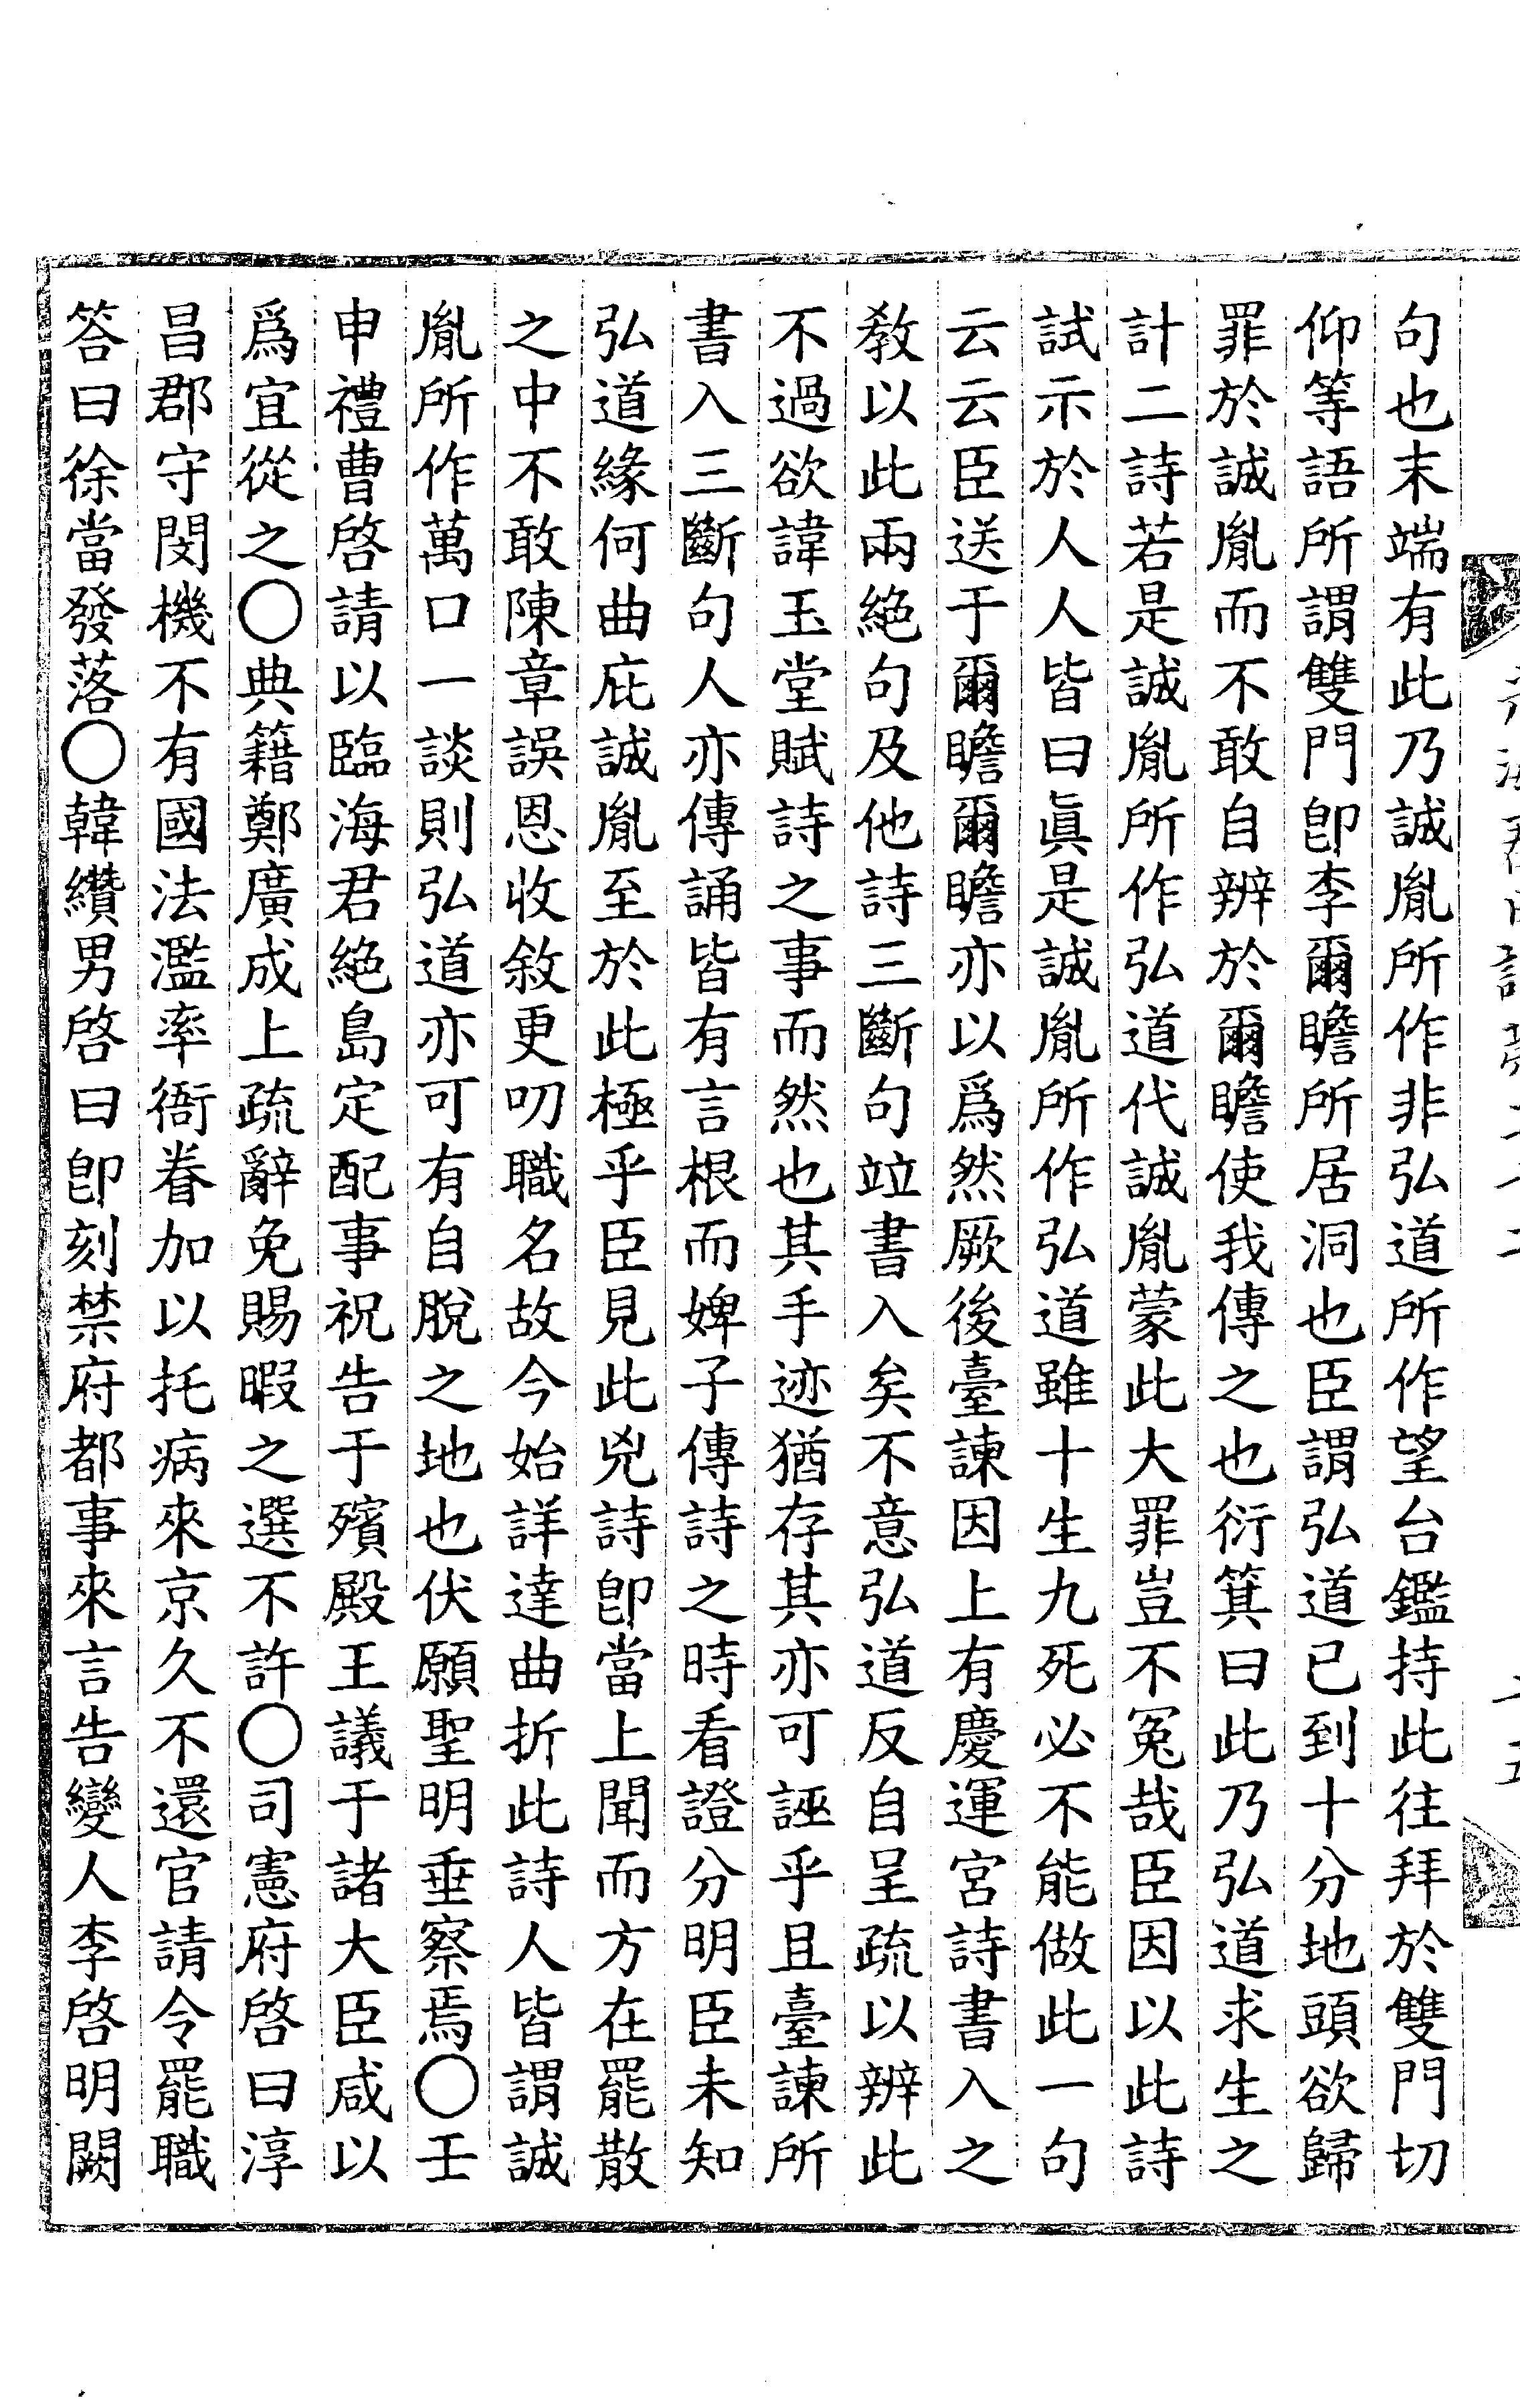 句也末端有此乃誠胤所作非弘道所作望台鑑持此往拜於雙門切
仰等語所謂雙門卽李爾瞻所居洞也臣謂弘道已到十分地頭欲歸
罪於誠胤而不敢自辨於爾瞻使我傳之也衍箕曰此乃弘道求生之
計二詩若是誠胤所作弘道代誠胤蒙此大罪豈不冤哉臣因以此詩
試示於人人皆曰眞是誠胤所作弘道雖十生九死必不能做此一句
云云臣送于爾瞻爾瞻亦以爲然厥後臺諫因上有慶運宮詩書入之
敎以此兩絕句及他詩三斷句竝書入矣不意弘道反自呈疏以辨此
不過欲諱玉堂賦詩之事而然也其手迹猶存其亦可誣乎且臺諫所
書入三斷句人亦傳誦皆有言根而婢子傳詩之時看證分明臣未知
弘道緣何曲庇誠胤至於此極乎臣見此兇詩卽當上聞而方在罷散
之中不敢陳章誤恩收敘更叨職名故今始詳達曲折此詩人皆謂誠
胤所作萬口一談則弘道亦可有自脫之地也伏願聖明垂察焉〇壬
申禮曹啓請以臨海君絕島定配事祝告于殯殿王議于諸大臣咸以
爲宜從之〇典籍鄭廣成上疏辭免賜暇之選不許〇司憲府啓曰淳
昌郡守閔機不有國法濫率衙眷加以托病來京久不還官請令罷職
答曰徐當發落〇韓纘男啓曰卽刻禁府都事來言告變人李啓明闕